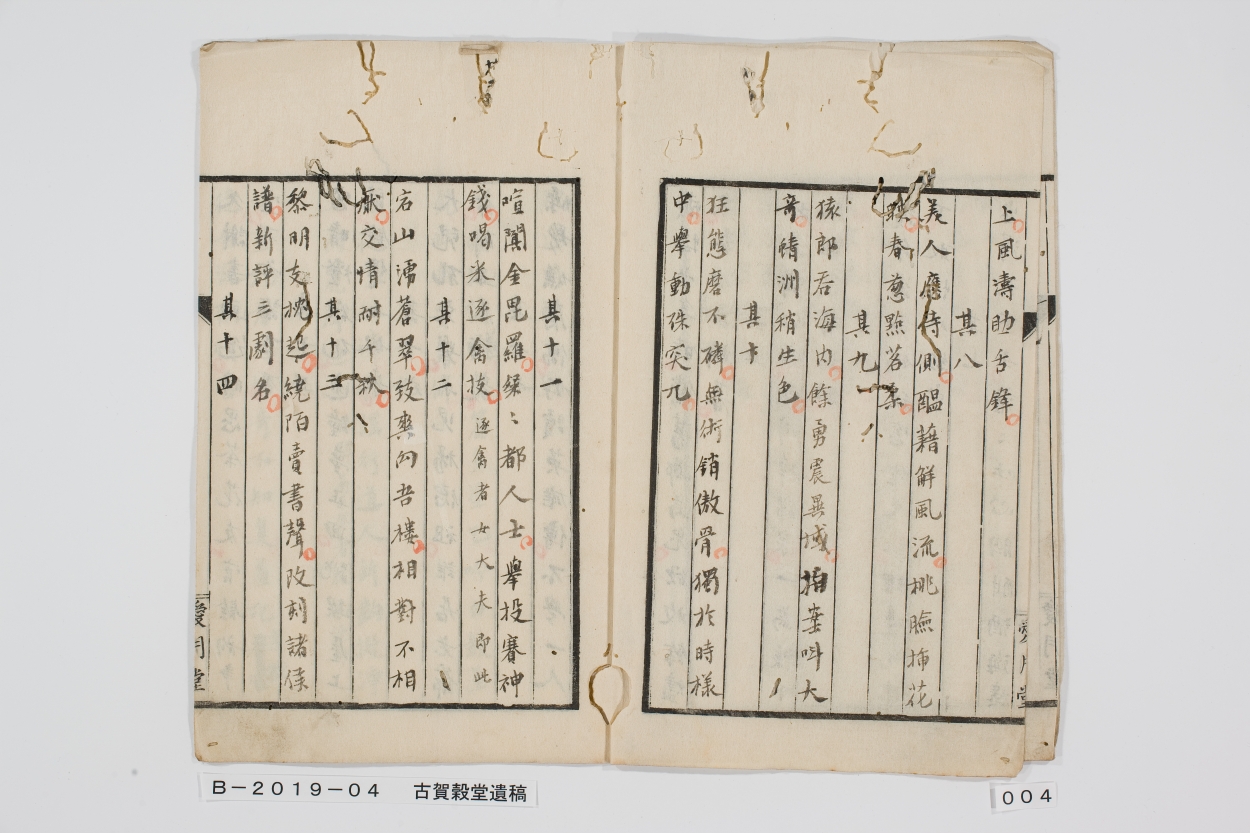 上風濤助舌鋒
其八
美人應侍側醞藉解風流桃臉揷花
映春葱點茗柔
其九
猿郎吞海内餘勇震異域拍案叫大
奇蜻洲稍生色
其十
狂態磨不磷無術銷傲骨獨於時樣
中舉動殊突兀
其十一
喧闐金毘羅 〻都人士舉投賽神
錢喝米逐禽技 逐禽者女大夫即此
其十二
宕山濡蒼翠 爽向吾樓相對不相
厭交情耐千秋
其十三
黎明支枕起繞陌賣書聲改刻諸侯
譜新評三劇名
其十四
愛月堂
愛月堂
B－2019－04　古賀穀堂遺稿
004